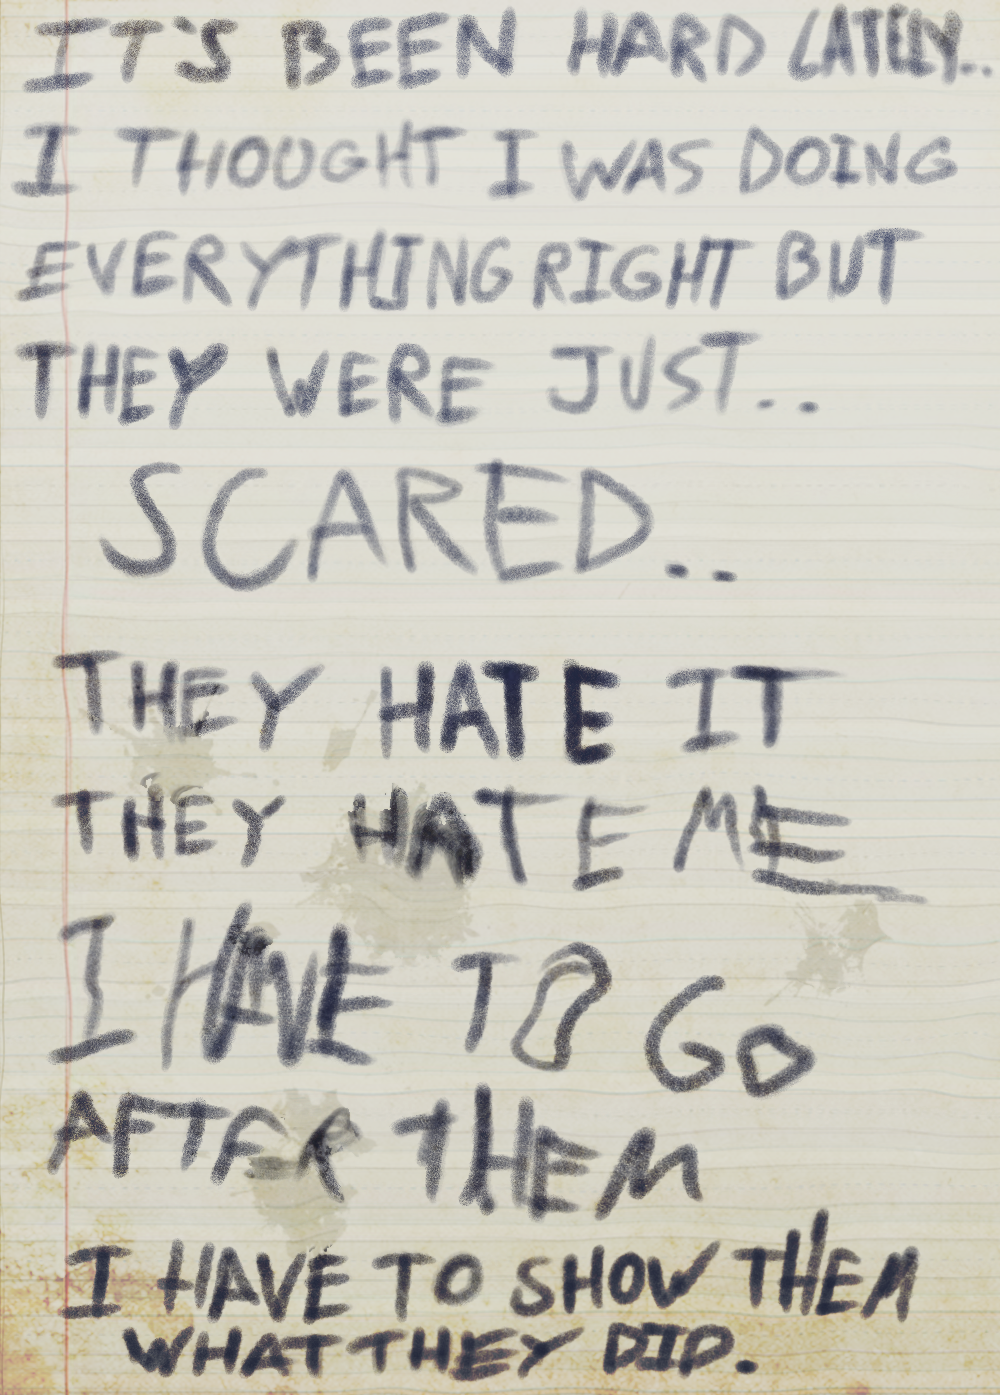 IT'S BEEN HARD LATELY..
I THOUGHT I WAS DOING
EVERYTHING RIGHT BUT
THEY WERE JUST..
SCARED..
THEY HATE IT
THEY HATE ME
I HAVE TO GO
AFTER THEM
I HAVE TO SHOW THEM
WHAT THEY DID.